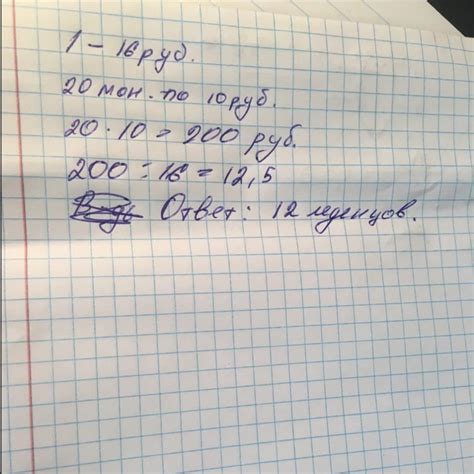 1 - 16 руб.
20 мон. по 10 руб.
20 · 10 = 200 руб.
200 ÷ 16 = 12,5
Ответ: 12 леденцов.